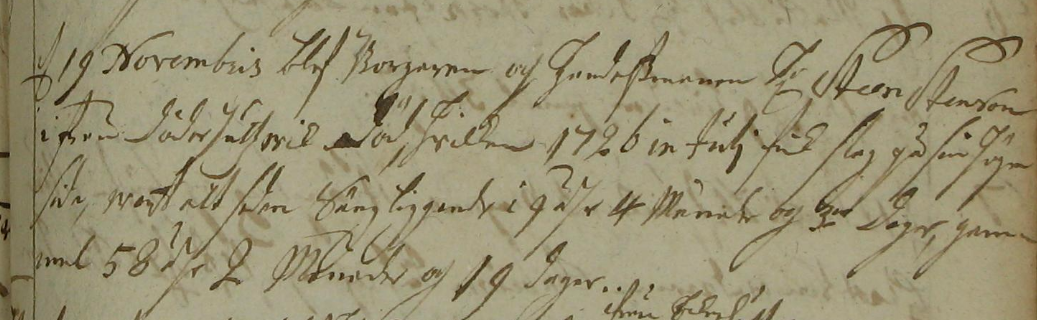 d 19 Novembris blef Borgaren och Handelsmannen Hr Steen Stenson
i från Söderhult död, hvilken 1726 in Julij fick slag på sin högra
sida, warit alt sedan Sängliggande i 9 åhr 4 Månader och Dagar, gam
mal 58 åhr 2 Månader och 19 dagar.